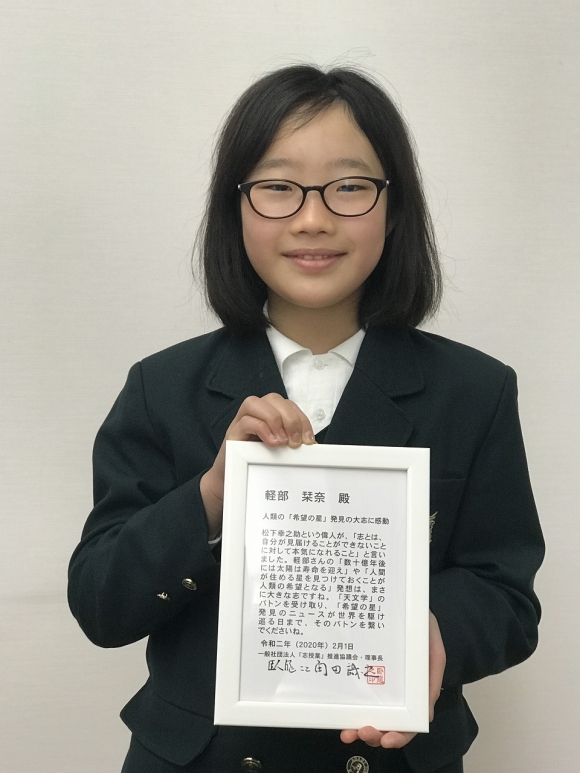 軽部 栞奈 殿
人類の「希望の星」発見の大志に感動
松下幸之助という偉人が、「志とは、
自分が見届けることができないこと
に対して本気になれること」と言い
ました。軽部さんの「数十億年後
には太陽は寿命を迎え」や「人間
が住める星を見つけておくことが
人類の希望となる」発想は、まさ
に大きな志ですね。「天文学」の
バトンを受け取り、「希望の星」
発見のニュースが世界を駆け
巡る日まで、そのバトンを繋い
でくださいね。
令和二年(2020年)2月1日
一般社団法人「志授業」推進協議会・理事長
臥龍こと